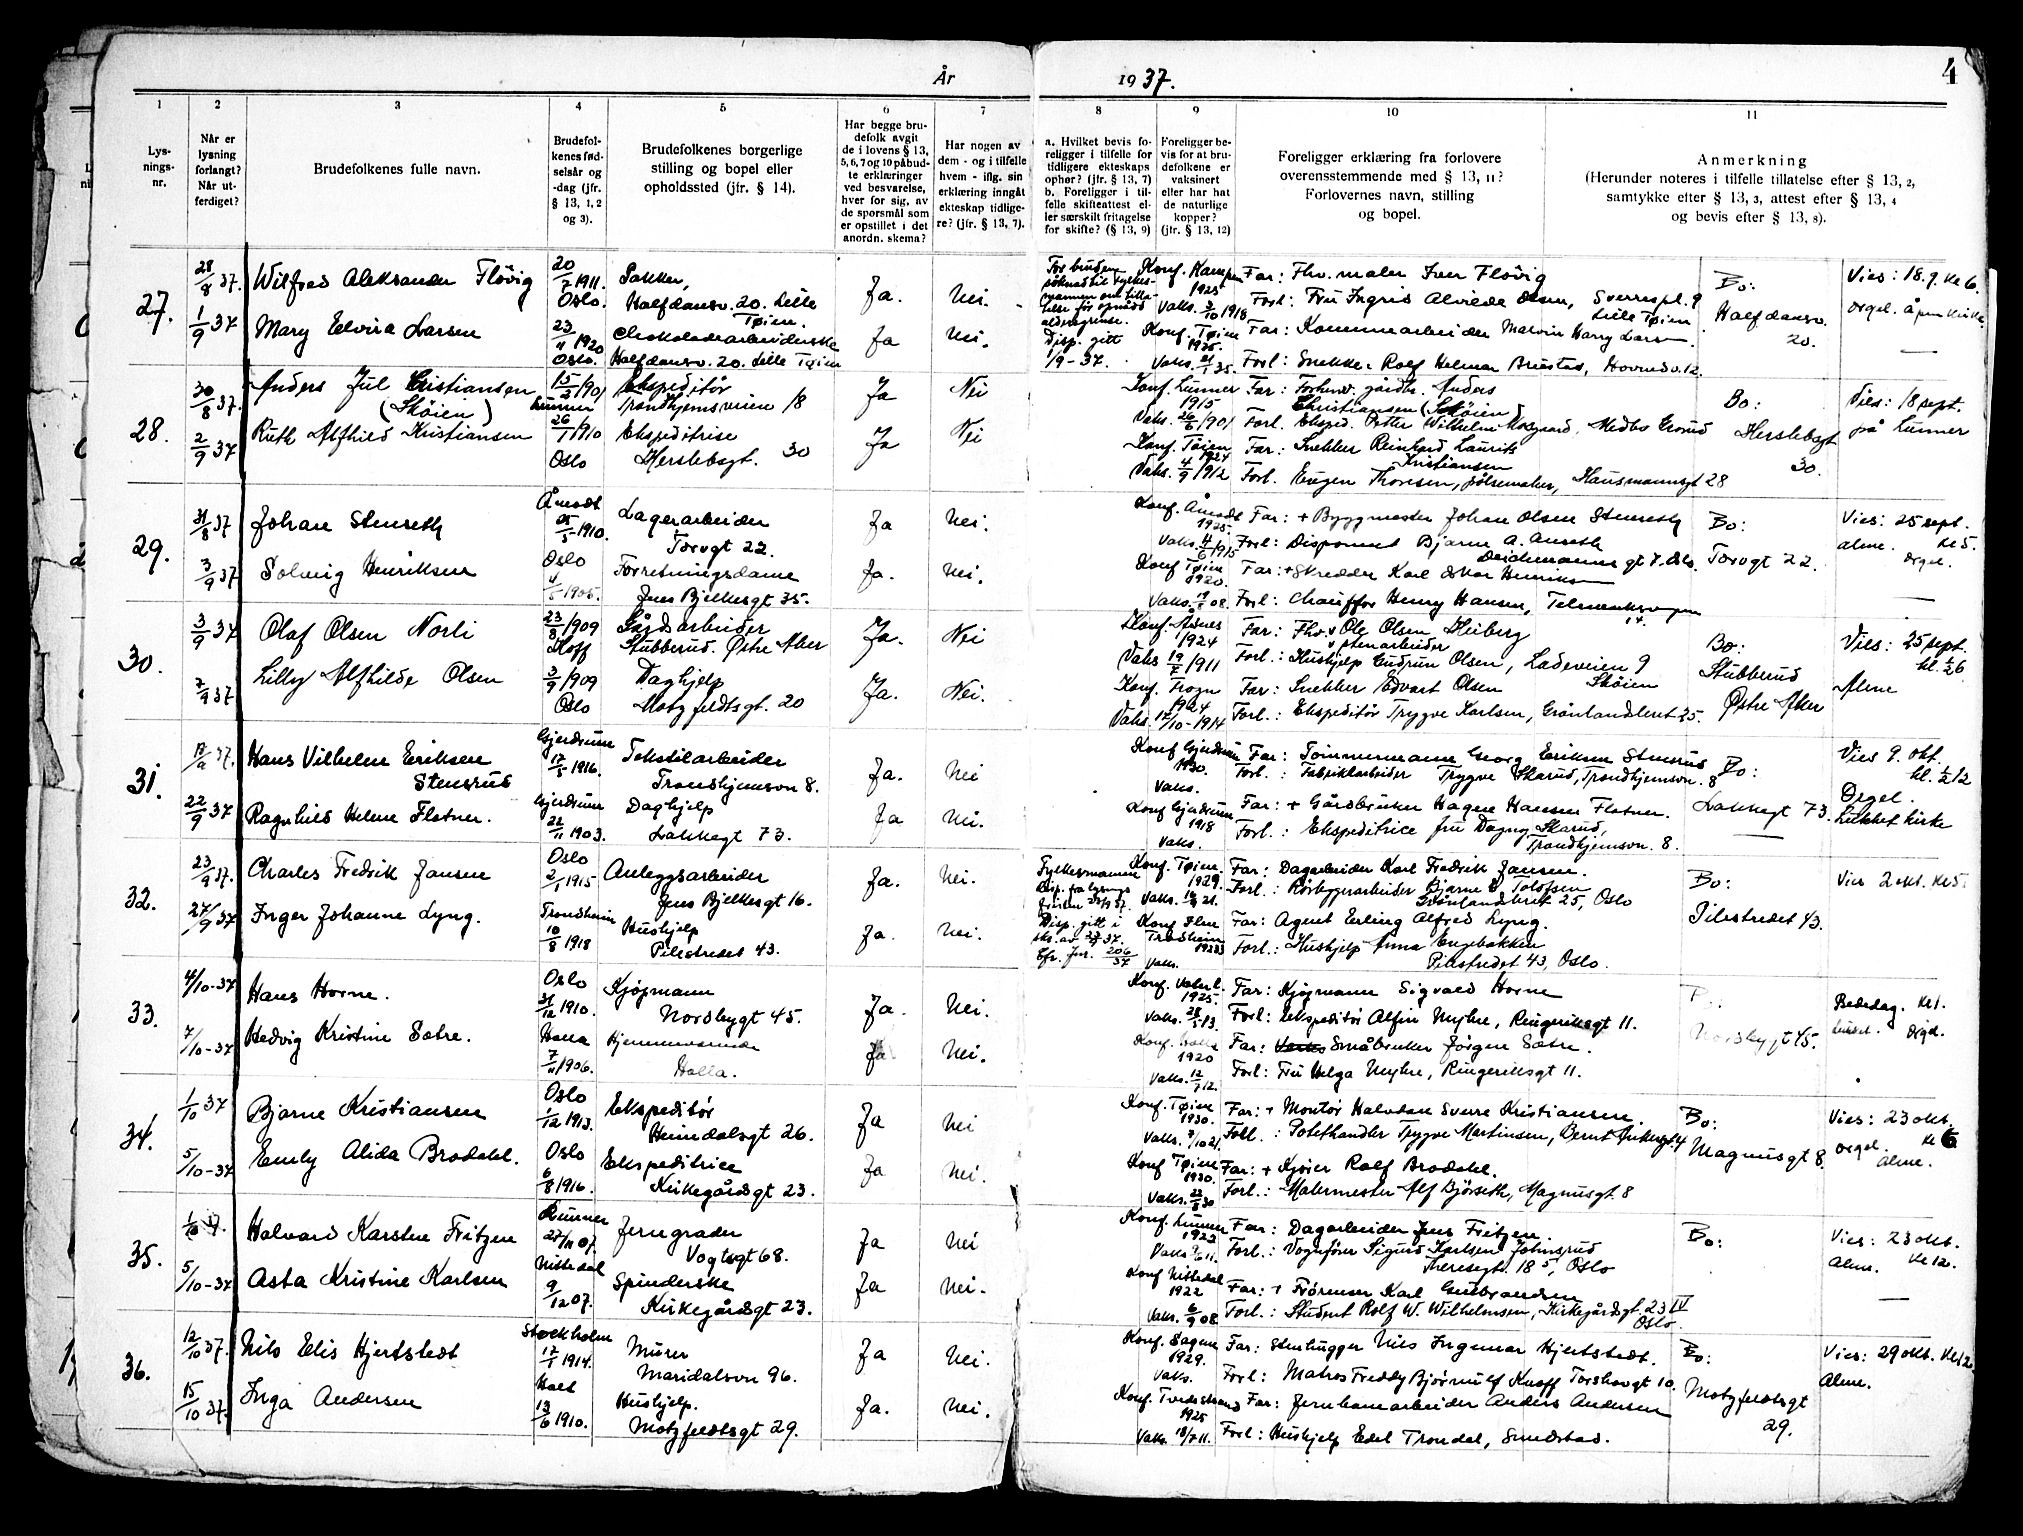 År 1937. 4
1 2 3 4 5 6 7 8 9 10 11
Lys-
nings-
nr.
Når er
lysning
forlangt?
Når ut-
ferdiget?
Brudefolkenes fulle navn.
Brudefol-
kenes fød-
selsår og
-dag (jfr.
§ 13, 1, 2
og 3).
Brudefolkenes borgerlige
stilling og bopel eller
opholdssted (jfr. § 14).
Har begge bru-
defolk avgit
de i lovens § 13,
5, 6, 7 og 10 påbud-
te erklæringer
ved besvarelse,
hver for sig, av
de spørsmål som
er opstillet i det
anordn. skema?
Har nogen av
dem - og i tilfelle
hvem - iflg. sin
erklæring inngått
ekteskap tidlige-
re? (jfr. § 13, 7).
a. Hvilket bevis fo-
religger i tilfelle for
tidligere ekteskaps
ophør? (jfr. § 13, 7)
b. Foreligger i til-
felle skifteattest el-
ler særskilt fritagelse
for skifte? (§ 13, 9)
Foreligger be-
vis for at bru-
defolkene er
vaksinert
eller har hat
de naturlige
kopper?
(jfr. § 13, 12)
Foreligger erklæring fra forlovere
overensstemmende med § 13, 11?
Forlovernes navn, stilling
og bopel.
Anmerkning
(Herunder noteres i tilfelle tillatelse efter § 13, 2,
samtykke efter § 13, 3, attest efter § 13, 4
og bevis efter § 13, 8).
27.
28/8 37. Wilfred Aleksander Fløvig 20/7 1911. Oslo. Pakker, Halfdansv. 20. Lille Tøien. Ja. Nei.
Konf. Kampen 1925 Vaks. 3/10 1918 Far: Fhv. maler Iver Fløvig
Forl: Fru Ingrid Alvilde Olsen, Sverrespl. 9 Lille Tøien
1/9 37 Mary Elvira Larsen 23/4 1920 Oslo. Chokoladearbeiderske Halfdansv. 20. Lille Tøien Ja Nei.
Disp. gitt 1/9-37. Konf. Tøien 1935. Vaks. 21/1 35. Far: Kommunearbeider Marvin Harry Larsen.
Forl: Snekker Rolf Helmer Bristad, Hovindv. 12.
Bo: Halfdansv. 20. Vies: 18.9. kl 6. orgel. åpen kirke
28.
30/8 37. Anders Jul Cristiansen (Skøien) 15/2 1901 Lunner Ekspeditør Trondhjemsveien 18 Ja Nei
Konf. Lunner 1915 Vaks. 26/6 1901 Far: Forhenv. gårdbr. Anders Christiansen (Skøien)
Forl. Eksped. Petter Wilhelm Mosgaard, Medbo Grorud
2/9 37 Ruth Alfhild Kristiansen 26/1 1910 Oslo Ekspeditrise Herslebsgt. 30 Ja Nei
Konf. Tøien 1924 Vaks. 4/9 1912 Far: Snekker Reinhard Laurits Kristiansen
Forl. Eugen Thoresen, pølsemaker, Hausmannsgt 28
Bo: Herslebsgt 30. Vies: 18 sept. på Lunner
29.
31/8 37 Johan Stenseth Åmodt 25/5 1910. Lagerarbeider Torvgt 22. Ja Nei.
Konf. Åmodt 1925. Vaks. 4/6 1915 Far: + Byggmester Johan Olsen Stenseth
Forl: Disponent Bjarne A. Anseth Deichmannsgt 7. Oslo.
3/9 37 Solveig Henriksen Oslo 4/5 1905. Forretningsdame Jens Bjelkesgt 35. Ja. Nei.
Konf Tøien 1920. Vaks. 19/5 08. Far: + Skredder Karl Oskar Henriksen
Forl: Chauffør Henry Hansen, Telemarksvingen 14.
Bo: Torvgt 22. Vies: 25 sept. kl 5. alene. orgel.
30.
3/9 37 Olaf Olsen Norli 23/8 1909 Hoff Gårdsarbeider Stubberud. Østre Aker Ja. Nei
Konf. Åsnes 1924 Vaks 19/7 1911 Far: Fhv. stenarbeider Ole Olsen Heiberg
Forl.: Hushjelp Gudrun Olsen, Ladeveien 9 Skøien
7/9 37 Lilly Alfhilde Olsen 3/9 1909 Oslo Daghjelp Motzfeldtsgt. 20 Ja. Nei.
Konf. Frogn 1924 Vaks. 12/10-1914 Far: Snekker Edvart Olsen
Forl.: Ekspeditør Trygve Karlsen, Grønlandsleret 25.
Bo: Stubberud Østre Aker Vies: 25 sept. kl. ½6 Alene
31.
17/9 37. Hans Vilhelm Eriksen Stensrud Gjerdrum 17/5 1916. Tekstilarbeider Trondhjemsvn 8. Ja. Nei
Konf Gjerdrum 1930. Vaks. Far: Tømmermann Georg Eriksen Stensrud
Forl.: Fabrikkarbeider Trygve Skarud, Trondhjemsvn. 8
22/9 37 Ragnhild Helene Flatner. Gjerdrum 22/11 1903. Daghjelp Lakkegt 73. Ja Nei.
Konf Gjerdrum 1918 Vaks. Far: + Gårdbruker Hagen Hansen Flatner.
Forl.: Ekspeditrice fru Dagny Skarud, Trondhjemsvn. 8.
Bo: Lakkegt 73. Vies 9. okt. kl. ½2 Orgel. Lukket kirke
32.
23/9 37. Charles Fredrik Jansen Oslo 2/1 1915 Anleggsarbeider Jens Bjelkesgt 16. Ja. Nei.
Konf. Tøien 1929. Far: Dagarbeider Karl Fredrik Jansen.
Forl.: Rørleggerarbeider Bjarne E Tolofsen Grønlandsleret 25, Oslo
27/9 37 Inger Johanne Lyng. Trondheim 10/8 1918 Hushjelp Pilestredet 43. Ja. Nei.
Disp. gitt i Konf Ilen Trondheim Vaks. Far: Agent Erling Alfred Lyng.
Forl.: Hushjelp Anna Engebakken Pilestredet 43, Oslo.
Bo: Pilestredet 43. Vies 2 okt. kl 5.
33.
4/10-37 Hans Horne. Oslo 31/12 1910. Kjøpmann Nordbygt 45. Ja. Nei.
Konf. Vålereng. 1925. Vaks. 28/5 13. Far: Kjøpmann Sigvald Horne
Forl: Ekspeditør Alfin Myhre, Ringeriksgt 11.
7/10-37 Hedvig Kristine Sætre. Holla 7/11 1906. Hjemmeværende Holla. Ja Nei.
Konf. Holla 1920 Vaks. 12/7 12. Far: Småbruker Jørgen Sætre.
Forl: Fru Helga Myhre, Ringeriksgt 11.
Bo: Nordbygt 45. Bededag. kl 1. Orgel.
34.
1/10 37 Bjarne Kristiansen Oslo 1/12 1913. Ekspeditør Heimdalsgt 26. Ja Nei
Konf. Tøien 1930. Vaks. 7/10 21. Far: + Montør Halvdan Sverre Kristiansen.
Forl.: Potethandler Trygve Martinsen, Bernt Ankersgt. 4
5/10-37 Emly Alida Brodahl. Oslo 6/8 1916. Ekspeditrice Kirkegårdsgt 23. Ja Nei.
Konf Tøien 1930. Vaks. 22/8 30 Far: + Kjører Rolf Brodahl.
Forl.: Malermester Alf Bjørseth, Magnusgt. 8
Bo: Magnusgt 8. Vies: 23 okt. kl 6 orgel. Alene.
35.
1/10 37. Halvard Karsten Fritzen Lunner 27/11 07. Jerngrader Vogtsgt 68. Ja Nei
Konf. Lunner 1923 Vaks 9/6 11. Far: Dagarbeider Jens Fritzen
Forl.: Vognfører Sigurd Karlsen Johnsrud Theresegt. 18 5, Oslo
5/10-37 Asta Kristine Karlsen Nittedal 9/12 07. Spinderske Kirkegårdsgt 23. Ja Nei.
Konf Nittedal 1922 Vaks. 6/9 08 Far: + Karl Gulbrandsen
Forl.: Student Rolf W. Wilhelmsen, Kirkegårdsgt. 23 IV Oslo.
Bo: Vies: 23 okt. kl 12. Alene.
36.
12/10 37. Nils Elis Hjertstedt Stockholm 17/1 1914. Murer Maridalsvn 96. Ja Nei.
Konf. Sagene 1929. Vaks. Far: Stenhugger Nils Ingemar Hjertstedt.
Forl: Matros Freddy Bjørnulf Knoff Torshovgt 10.
15/10 37. Inga Andersen Holt 13/6 1910. Hushjelp. Motzfeldtsgt 29. Ja. Nei.
Konf. Tvedestrand 1925 Vaks. 18/7 11. Far: Jernbanearbeider Anders Andersen
Forl: Hushjelp Edel Trondal, Sundstad.
Bo: Motzfeldtsgt 29. Vies: 29 okt. kl 12 Alene.